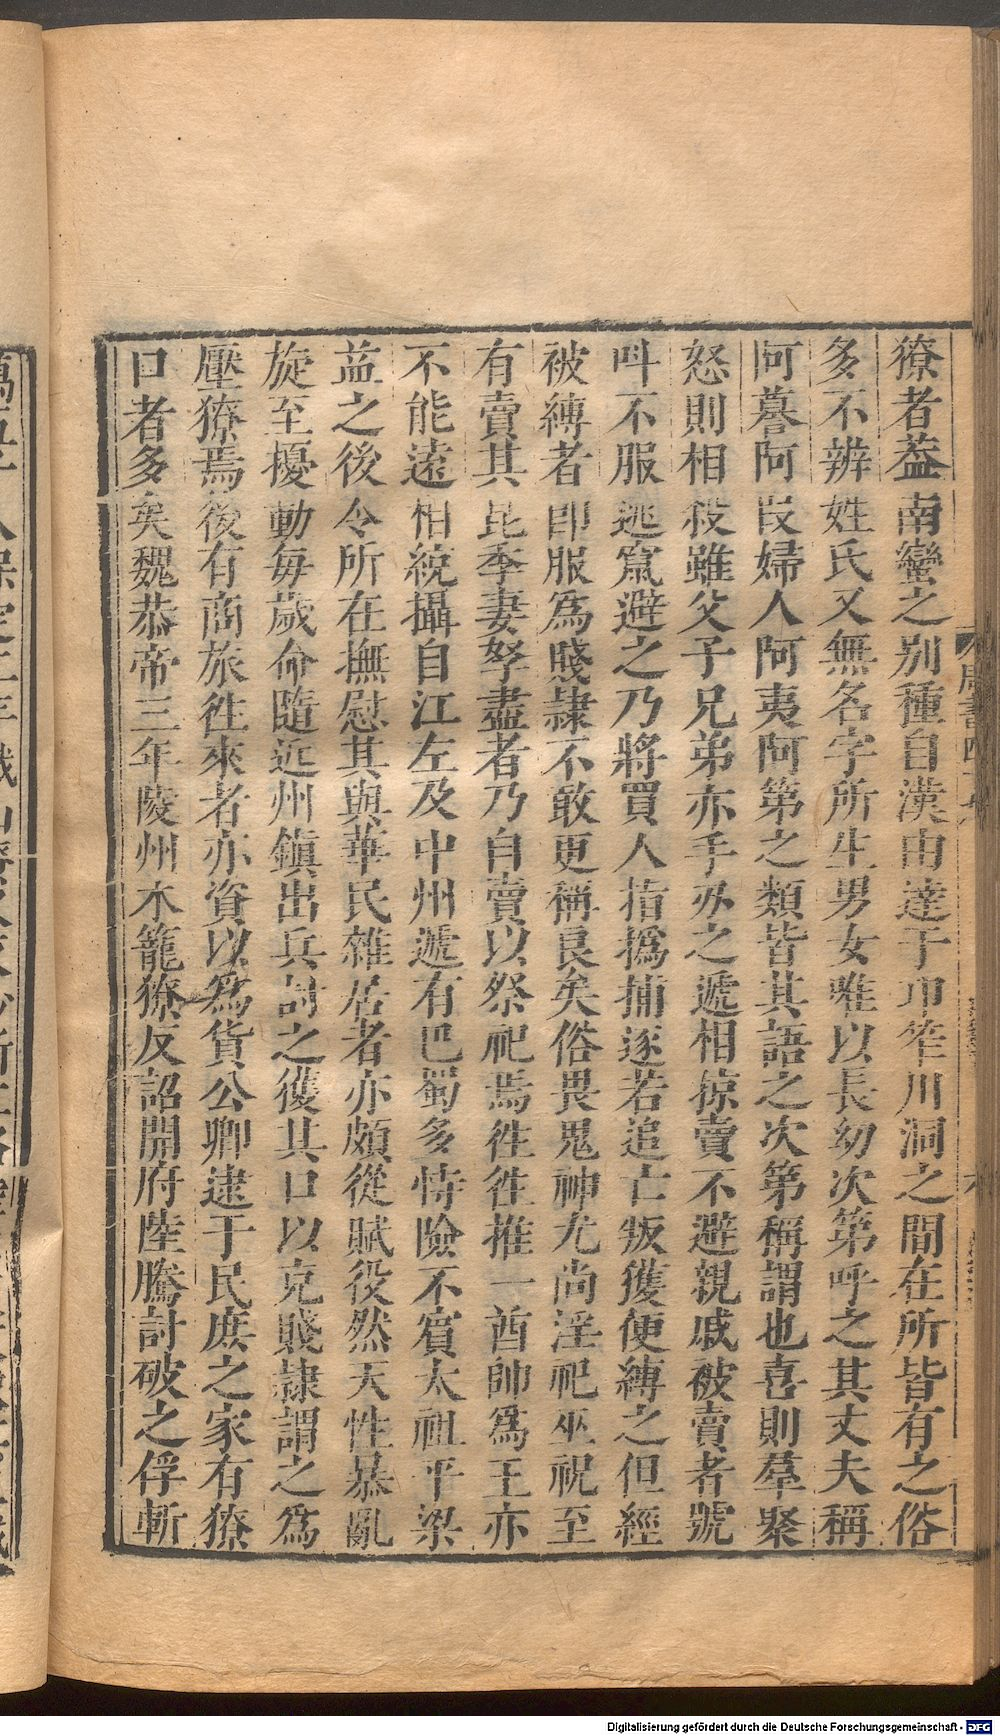 獠者葢南蠻之别種自漢由達于卭筰川洞之間在所皆有之俗
多不辨姓氏又無名字所生男女唯以長幼次第呼之其丈夫稱
阿謩阿段婦人阿夷阿第之類皆其語之次第稱謂也喜則羣聚
怒則相殺雖父子兄弟亦手刃之遞相掠賣不避親戚被賣者號
呌不服逃竄避之乃將買人指撝捕逐若追亡叛獲便縛之但經
被縛者卽服爲賤隷不敢更稱良矣俗畏鬼神尤尚淫祀巫祝至
有賣其昆季妻孥盡者乃自賣以祭祀焉徃徃推一酋帥爲王亦
不能遠相統攝自江左及中州遞有巴蜀多恃險不賔太祖平梁
益之後令所在撫慰其與華民雜居者亦頗從賦役然天性暴亂
旋至擾動每歲命隨近州鎭出兵討之獲其口以克賤隷謂之爲
壓獠焉後有商旅徃來者亦資以爲貨公卿逮于民庶之家有獠
口者多矣魏恭帝三年陵州木籠獠反詔開府陸騰討破之俘斬
周書四十九
Digitalisierung gefördert durch die Deutsche Forschungsgemeinschaft - DFG